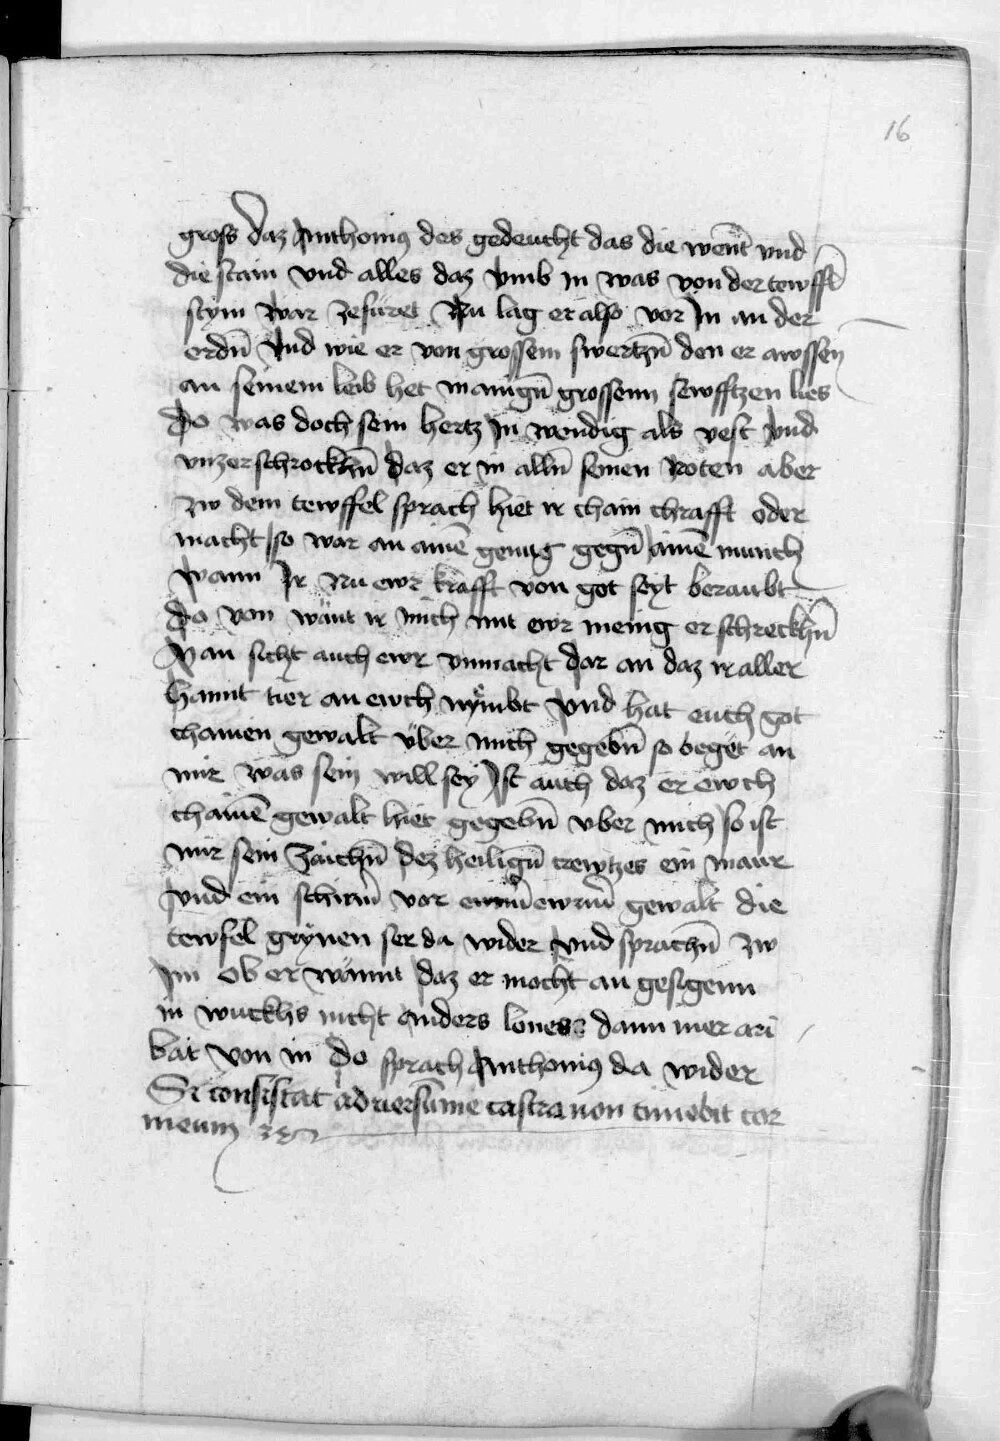 16
gross daz Anthonius des gedeucht das die went vnd
die stain vnd alles daz vmb in was von der tewfft
stym war zefüret Nu lag er also vor In an der
erdn̄ Vnd wie er von grossem swertzn̄ den er awssen
an seinem leib het manign̄ grossenn sewfftzen lies
Do was doch sein hertz In wendig als vest vnd
vnzerschrockhn̄ daz er in alln̄ seinen noten aber
zw dem tewffel sprach hiet ir chain chrafft oder
macht so war an ainē genug gegn̄ ainē munch
Wann Ir Nu ewr krafft von got seyt beraubt
Do von wänt ir mich mit ewr menig erschreckhn̄
Man sicht auch ewr vnmacht dar an daz ir aller
hannt tier an ewch nymbt Vnd hat euch got
chainen gewalt über mich gegebn̄ so beget an
mir was sein will sey Ist auch daz er ewch
chainē gewalt hiet gegebn̄ vber mich so ist
mir sein Zaichn̄ dez heilign̄ crewtzes ein maur
vnd ein schirm̄ vor ewrm̄ gewalt die
tewfel grynen ser da wider vnd sprachn̄ zw
Im ob er wännt daz er mocht an gesigenn
in wuckhs nicht anders lones dann mer ari
bait von in Do sprach Anthonius da wider
Si consistat aduersum̄ me castra non timebit cor
meum